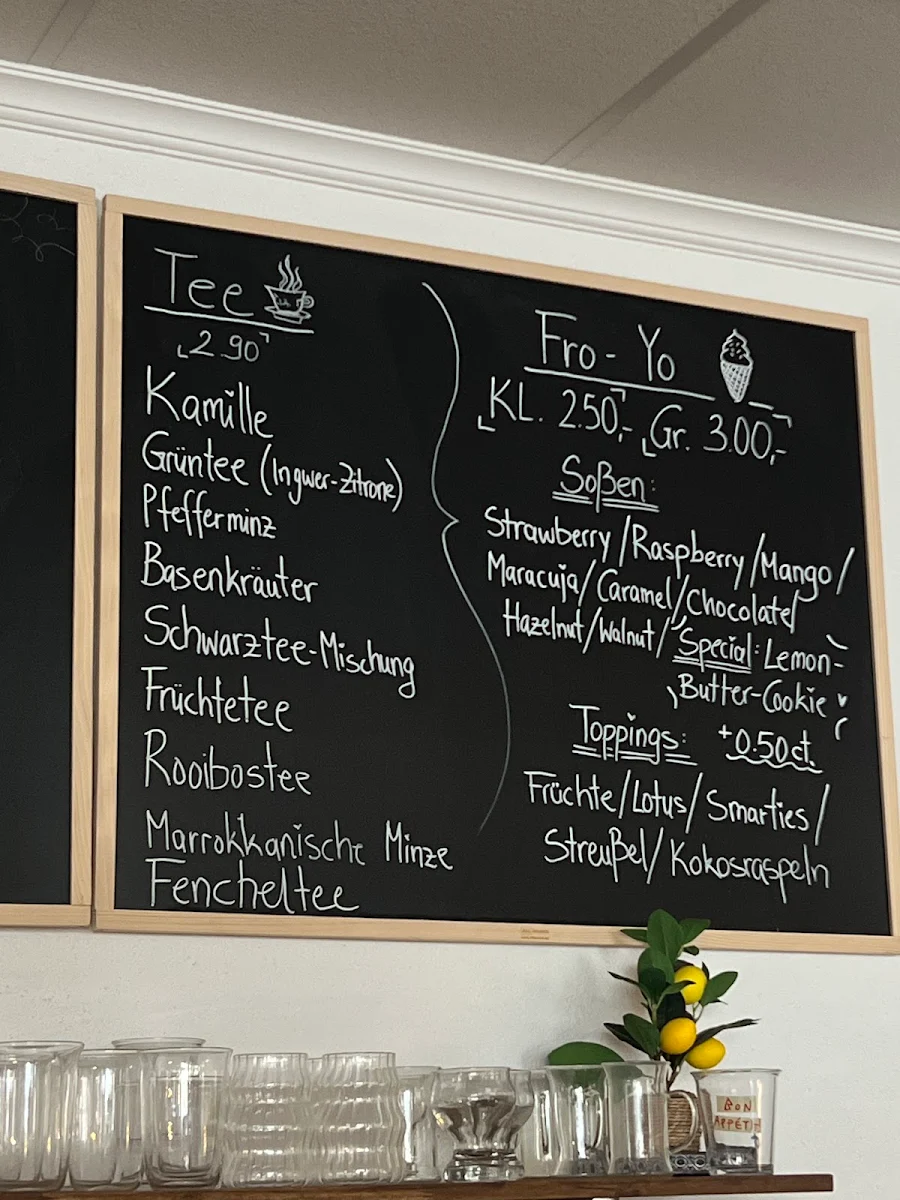 Tee
2.90
Kamille
Grüntee (Ingwer-Zitrone)
Pfefferminz
Basenkräuter
Schwarztee-Mischung
Früchtetee
Rooibostee
Marrokkanische Minze
Fencheltee
Fro-Yo
KL. 2.50,- Gr. 3.00,-
Soßen:
Strawberry/Raspberry/Mango/
Maracuja/Caramel/Chocolate/
Hazelnut/Walnut/Special: Lemon-
Butter-Cookie
Toppings: +0.50ct.
Früchte/Lotus/Smarties/
Streußel/Kokosraspeln
BON
APPÉTIT